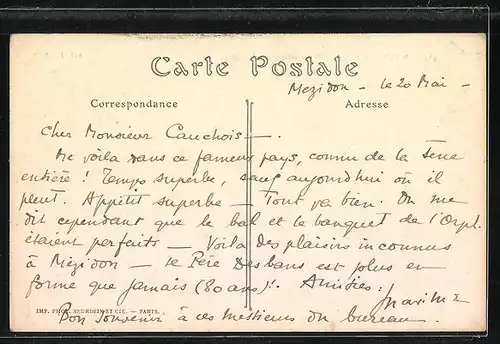 Carte Postale
Mezidon - le 20 Mai -
Correspondance
Adresse
Cher Monsieur Cauchois -.
Me voila dans ce fameux pays, connu de la Terre
entière ! Temps superbe, sauf aujourd'hui où il
pleut. Appétit superbe - Tout va bien. On me
dit cependant que le bal et le banquet de l'Orph.
étaient parfaits - Voila des plaisirs inconnus
à Mézidon - le Père Desbans est plus en
forme que jamais (80 ans) ! - Amitiés :
IMP. PHOT. NEURDEIN ET CIE. - PARIS.
Bon Souvenir à ces messieurs du bureau.